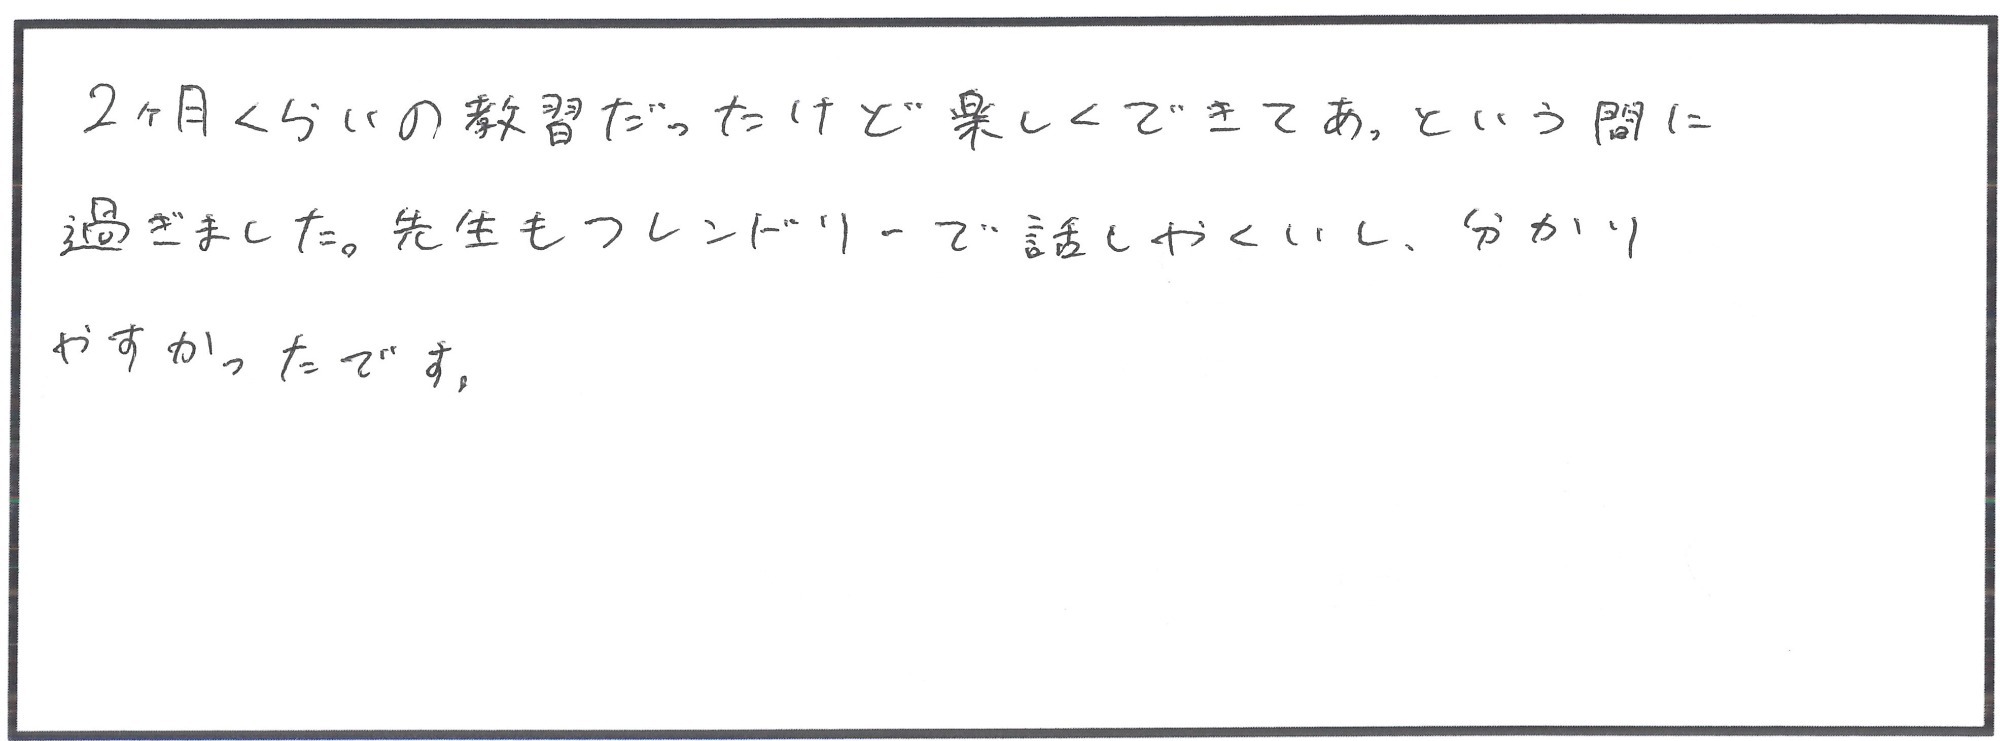 2ヶ月くらいの教習だったけど楽しくできてあっという間に
過ぎました。先生もフレンドリーで話しやくいし、分かり
やすかったです。